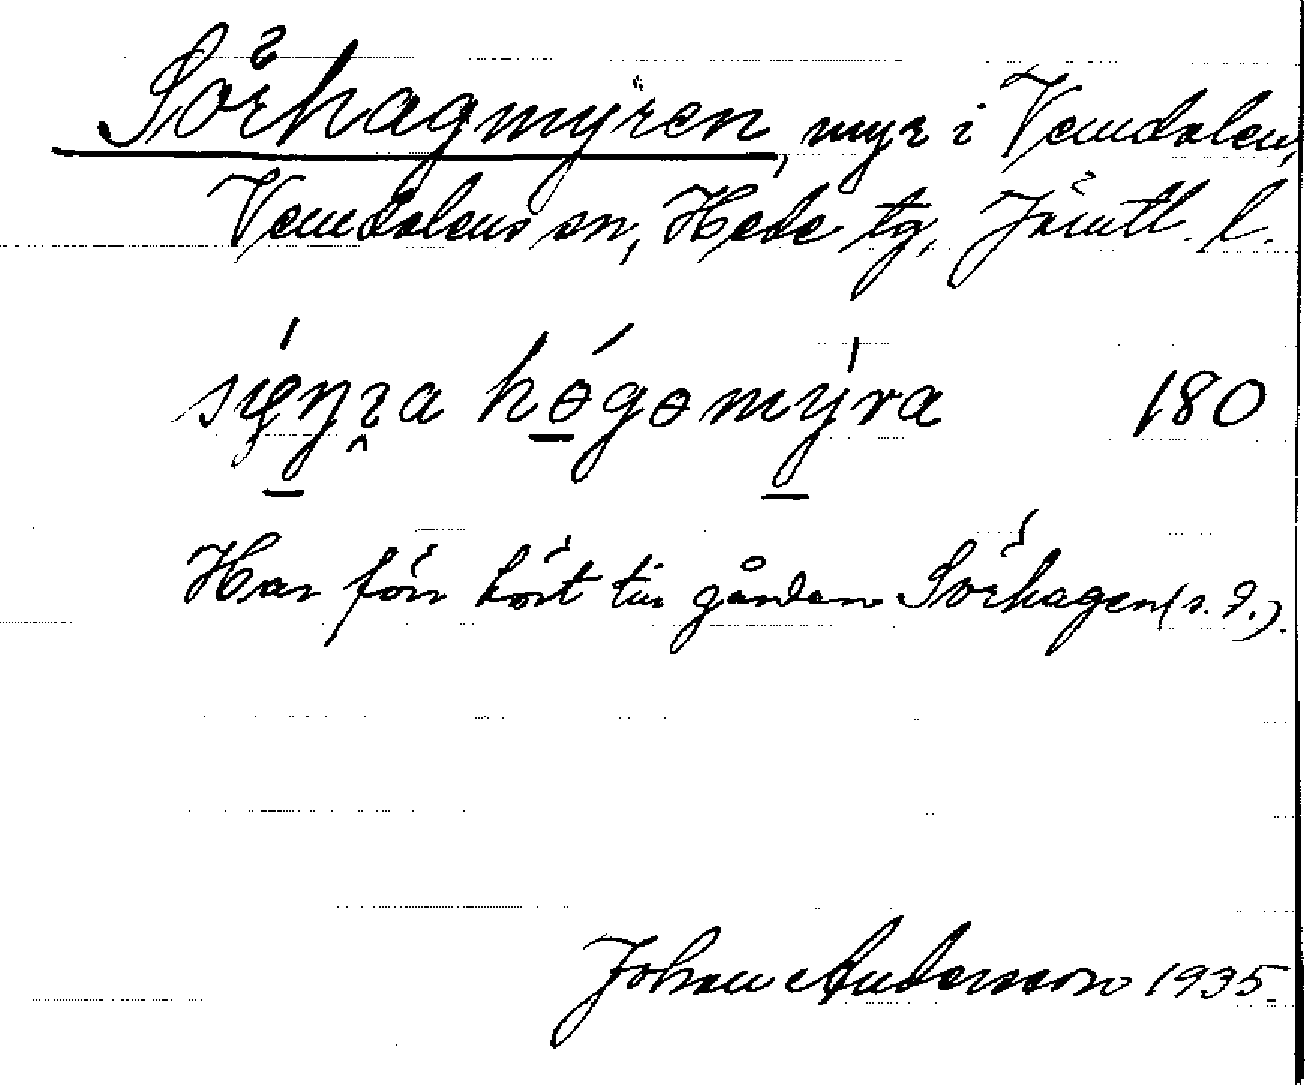 Sörhagmyren, myr i Vemdalen,
Vemdalens sn, Hede tg, Jämtl. l.
hógomýra 180
Har förr hört till gården Sörhagen (s. d.).
Johan Andersson 1935.